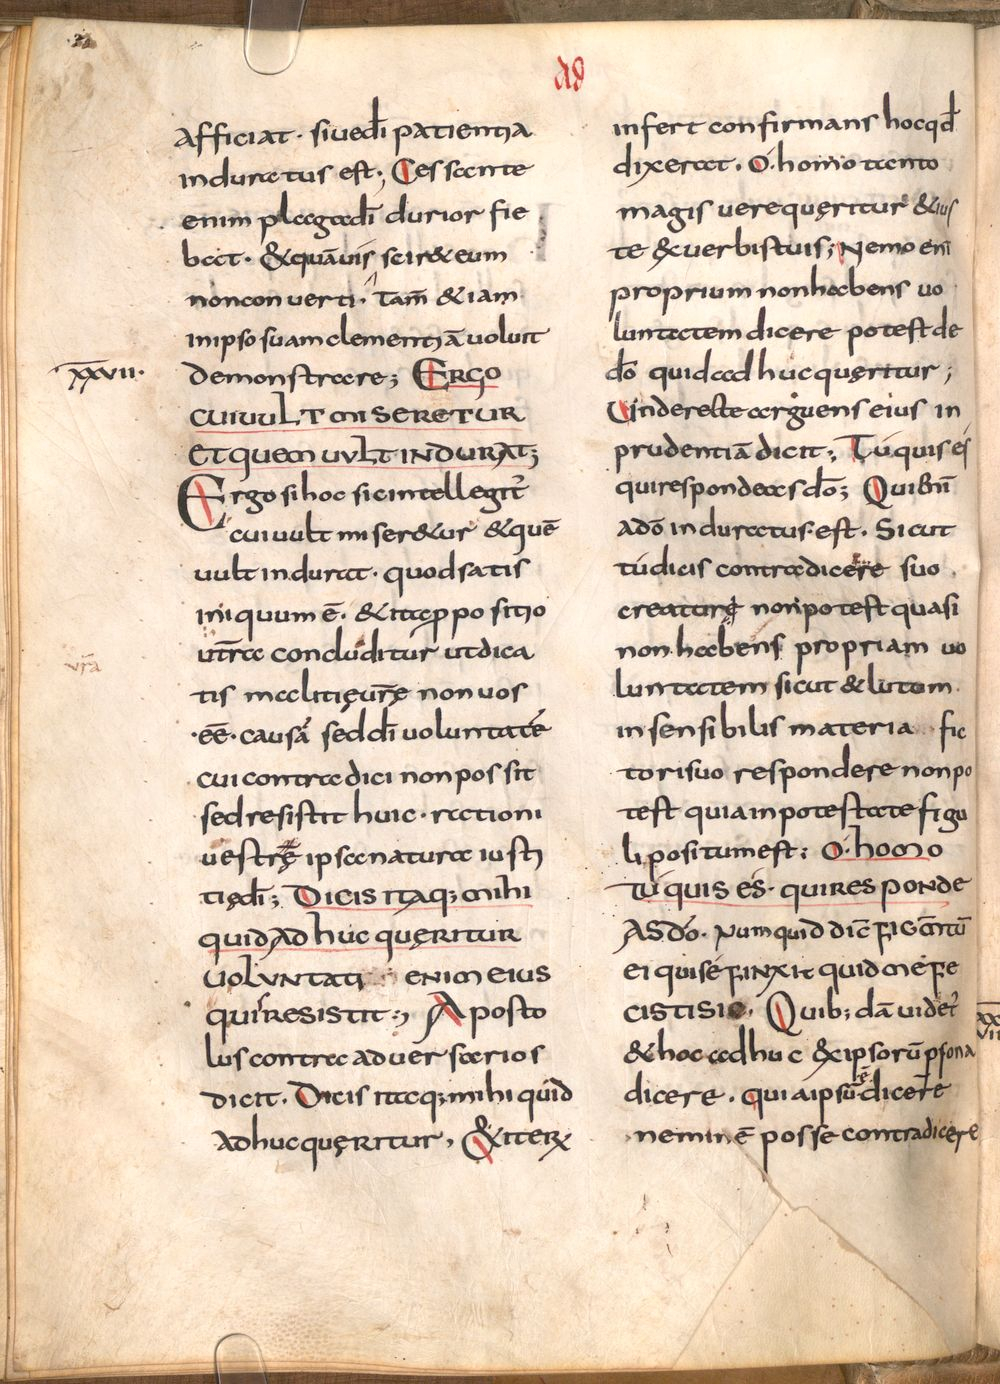 ad
afficiat · siuedi patientia
induratus est; Cessante
enim plaga di durior fie
bat · &quāuis scir& eum
nonconuerti · Tam̄ &iam
inipso suam clementiā uoluit
xxvii·
demonstrare; Ergo
cuiuult miseretur
et quem uult indurat;
Ergo si hoc sic intellegit̄
cui uult miser&ur &quē
uult indurat · quod satis
iniquum ē · &ita ꝓpositio
utrā concluditur ut dica
ur̄a
tis malitię ur̄ę non uos
·eē· causā sed di uoluntatē
cui contradici non possit
sed resistit huic · rationi
uestrę ipsa natura iusti
tię di; Dicis itaq; mihi
quid ad huc quęritur
uoluntati enim eius
quis resistit; Aposto
lus contra aduersarios
dicit · Dicis itaq; mihi quid
ad huc quęritur, &iterx
infert confirmans hoc qd
dixerat · O homo tanto
magis uere quęritur &ius
te & uerbis tuis; Nemo eni
proprium non habens uo
luntatem dicere potest de
dō quid ad huc quęritur;
Vnde recte arguens eius in
prudentiā dicit; Tu quis es
qui respondeas dō; Quibn̄
a dō induratus est · Sicut
tu dicis contradicere suo
creaturę non potest quasi
non habens propriam uo
luntatem sicut & lutum
insensibilis materia fic
tori suo respondere non po
test quia in potestate figu
li positum est; O homo
tu quis es · qui responde
as dō · Numquid dic̄ figmtū
ei qui se finxit quid me fe
cisti sic · Quib; dā uidet̄
xxvii
& hoc ad huc ex ipsorū psona
dicere · quia ipsū ē dicere
neminē posse contradicere